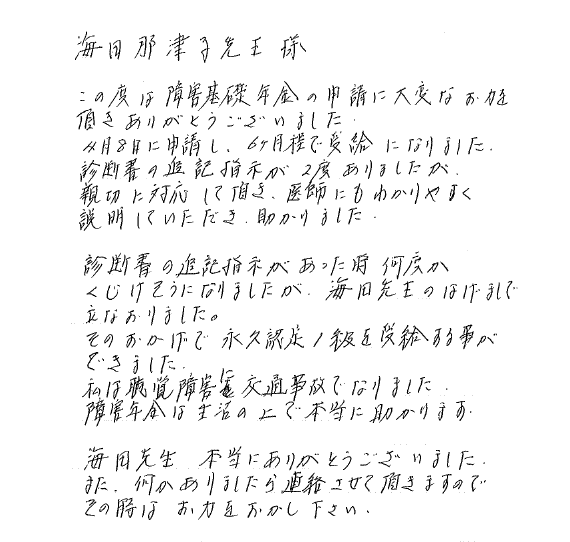 海田那津子先生様
この度は障害基礎年金の申請に大変なお力を
頂きありがとうございました.
4月8日に申請し、6ヶ月程で受給になりました.
診断書の追記指示が2度ありましたが、
親切に対応して頂き、医師にもわかりやすく
説明していただき、助かりました.
診断書の追記指示があった時何度か
くじけそうになりましたが、海田先生のはげましで
立なおりました。
そのおかげで永久認定1級を受給する事が
できました.
私は聴覚障害に交通事故でなりました.
障害年金は生活の上で本当に助かります.
海田先生 本当にありがとうございました.
また、何かありましたら連絡させて頂きますので
その時はお力をおかし下さい.